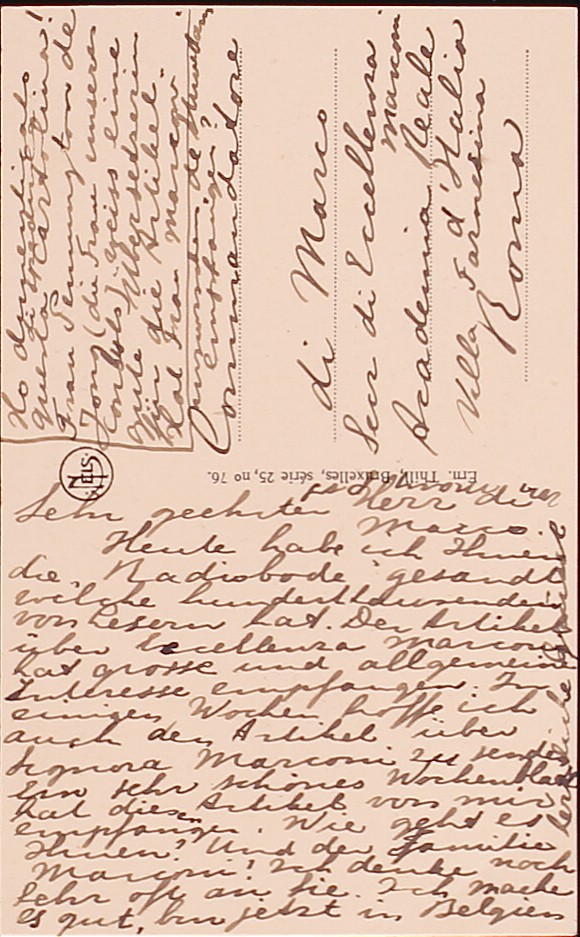 Sehr geehrter Herr di
Marco.
Heute habe ich Ihnen
die "Radiobode" gesandt
welche hunderttausenden
von Lesern hat. Der Artikel
über Eccellenza Marconi
hat grosse und allgemeine
Interesse empfangen. In
einigen Wochen hoffe ich
auch den Artikel über
Signora Marconi zu senden
Ein sehr schönes Wochenblatt
hat diesen Artikel von mir
empfangen. Wie geht es
Ihnen? Und der Familie
Marconi? Ich denke noch
sehr oft an Sie. Ich mache
es gut, bin jetzt in Belgien
Ern. Thill, Bruxelles, série 25, no 76.
NELS
Ho dimenticato
questa cartolina!
Frau Pennington de
Jong (die Frau unseres
Konsuls) weiss eine
gute Übersetzerin
für die Artikel.
Hat Frau Marconi
empfangen?
Commandatore
di Marco
Seur di Eccellenza
Marconi
Academia Reale
d'Italia
Villa Farnesina
Roma